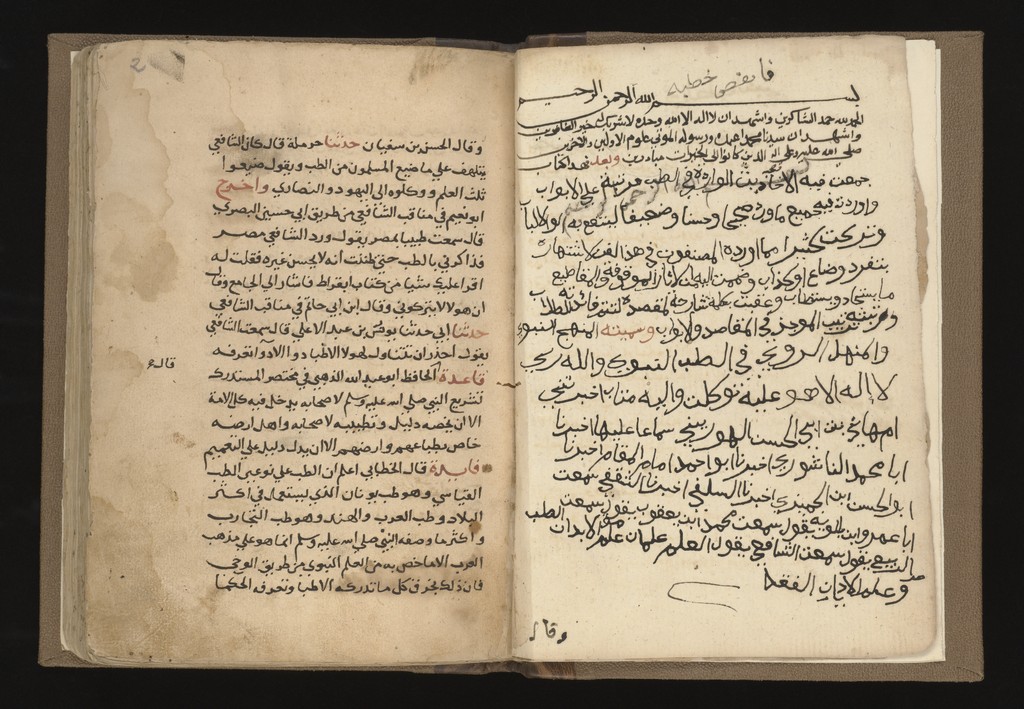 فا بعض خطبه
بسم الله الرحمن الرحيم
الحمد لله حمد الشاكرين واشهد ان لا اله الا الله وحده لا شريك
واشهد ان سيدنا محمدا عبده ورسوله الموتى علوم الاولين والاخرين
صلى الله عليه وعلى اله الذين كانوا الى الخيرات مبادرين وبعد فهذا كتاب
جمعت فيه الاحاديث الواردة في الطب مرتبة على الابواب
واوردت فيه جميع ما ورد صحيحا وحسنا وضعيفا لينتفع به اولو الالباب
وتركت كثيرا مما اورده المصنفون في هذا الفن لاشتهاره
بتفرد وضاع او كذاب وضممت اليه الاثار الموقوفة والمقاطيع
ما يستجاد ويستطاب وعقبت بكلمة شارحة لمقصده لتتم فائدته للطلاب
ورتبته ترتيب الموجز في المقاصد والابواب وسميته المنهج السوي
والمنهل الروي في الطب النبوي والله ربي
لا اله الا هو عليه توكلت واليه متاب اخبرتني
ام هاني بنت ابي الحسن الهوريني سماعا عليها اخبرنا
ابا محمد النشاوري اخبرنا ابو احمد امام المقام اخبرنا
ابو الحسن ابن الحميزي اخبرنا السلفي اخبرنا الثقفي سمعت
ابا عمرو بن بالويه يقول سمعت محمد ابن يعقوب يقول سمعت
الربيع يقول سمعت الشافعي يقول العلم علمان علم الابدان الطب
وعلم الاديان الفقه
وقال
2
وقال الحسن بن سفيان حدثنا حرملة قال كان الشافعي
يتلهف على ما ضيع المسلمون من الطب ويقول ضيعوا
ثلث العلم ووكلوه الى اليهود والنصاري واخرج
ابو نعيم في مناقب الشافعي من طريق ابي حسين البصري
قال سمعت طبيبا بمصر يقول ورد الشافعي مصر
فذاكرني بالطب حتى ظننت انه لا يحسن غيره فقلت له
اقرا عليك شيا من كتاب ابقراط فاشار الى الجامع وقال
ان هولا لا يتركوني وقال ابن ابي حاتم في مناقب الشافعي
حدثنا ابي حدثنا يونس بن عبد الاعلى قال سمعت الشافعي
يقول احذر ان تتناول لهولا الاطبا دوا الا دوا تعرفه
قاعدة الحافظ ابو عبد الله الذهبي في مختصر المستدرك
قال
لتشريع النبي صلى الله عليه وسلم لاصحابه يدخل فيه كل الامة
الا ان يخصه دليل وتطبيبه لاصحابه واهل ارضه
خاص بطباعهم وارضهم الا ان يدل دليل على التعميم
فايدة قال الخطابي اعلم ان الطب على نوعين الطب
القياسي وهو طب يونان الذي يستعمل في اكثر
البلاد وطب العرب والهند وهو طب التجارب
واكثر ما وصفه النبي صلى الله عليه وسلم انما هو على مذهب
العرب الا ما خص به من العلم النبوي من طريق الوحي
فان ذلك يخرق كل ما تدركه الاطبا وتعرفه الحكما